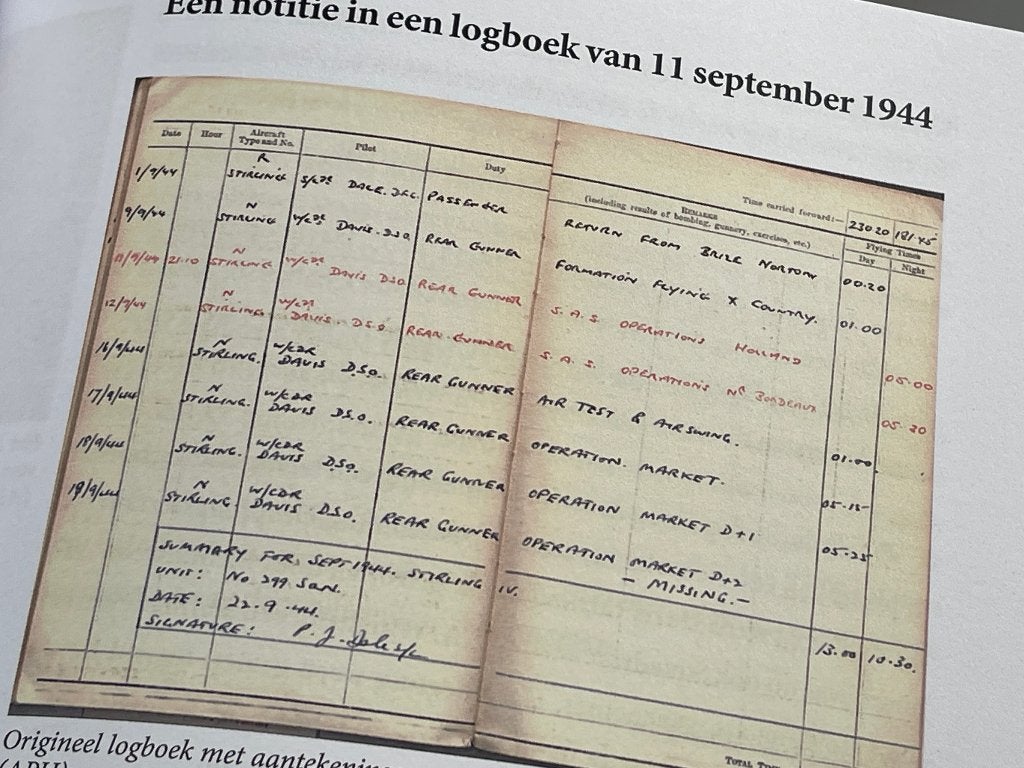 Een notitie in een logboek van 11 september 1944
Date Hour Aircraft Type and No. Pilot Duty REMARKS (including results of bombing, gunnery, exercises, etc.) Flying Times Day Night
Time carried forward:— 230 20 181.45
1/9/44 R STIRLING S/LDR DALE. D.F.C. PASSENGER RETURN FROM BRIZE NORTON 00.20
9/9/44 N STIRLING W/CDR DAVIS. D.S.O. REAR GUNNER FORMATION FLYING X COUNTRY. 01.00
11/9/44 21.10 N STIRLING W/CDR DAVIS D.S.O. REAR GUNNER S.A.S. OPERATIONS HOLLAND 05.00
12/9/44 N STIRLING W/CDR DAVIS. D.S.O. REAR GUNNER S.A.S. OPERATIONS NR BORDEAUX 05.30
16/9/44 N STIRLING. W/CDR DAVIS D.S.O. REAR GUNNER AIR TEST & AIR SWING. 01.00
17/9/44 N STIRLING. W/CDR DAVIS D.S.O. REAR GUNNER OPERATION. MARKET. 05.15
18/9/44 N STIRLING. W/CDR DAVIS D.S.O. REAR GUNNER OPERATION MARKET D+1 05.25
19/9/44 N STIRLING. W/CDR DAVIS D.S.O. REAR GUNNER OPERATION MARKET D+2
- MISSING. -
SUMMARY FOR, SEPT 1944. STIRLING IV. 13.00 10.30.
UNIT: No 299 SQN.
DATE: 22.9.44.
SIGNATURE: P. J.
TOTAL
Origineel logboek met